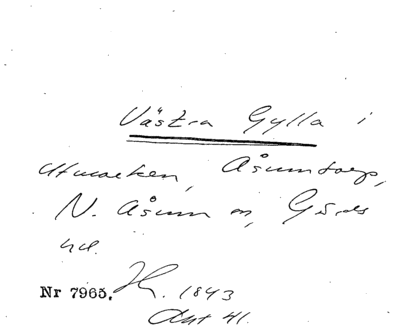 Västra Gylla i
utmarken, Åsumtorp,
N. Åsum sn, Gärds
hd.
Nr 7965. H. 1843
Akt 41.